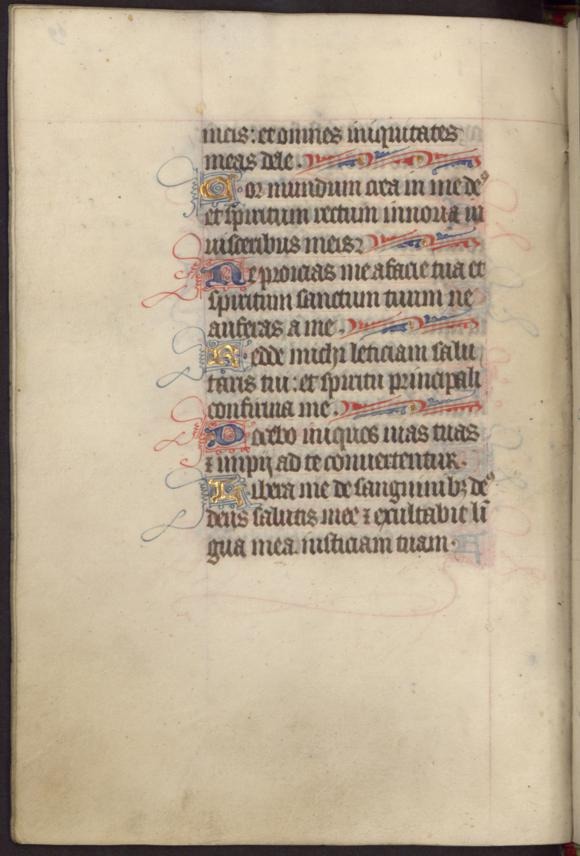 meis: et omnes iniquitates
meas dele.
Cor mundum crea in me deꝰ
et spiritum rectum innova in
visceribus meis
Ne proicias me a facie tua et
spiritum sanctum tuum ne
auferas a me.
Redde michi leticiam salu
taris tui: et spiritu principali
confirma me.
Docebo iniquos vias tuas
⁊ impij ad te convertentur.
Libera me de sanguinibꝫ deꝰ
deus salutis mee ⁊ exultabit lī
gua mea iusticiam tuam.